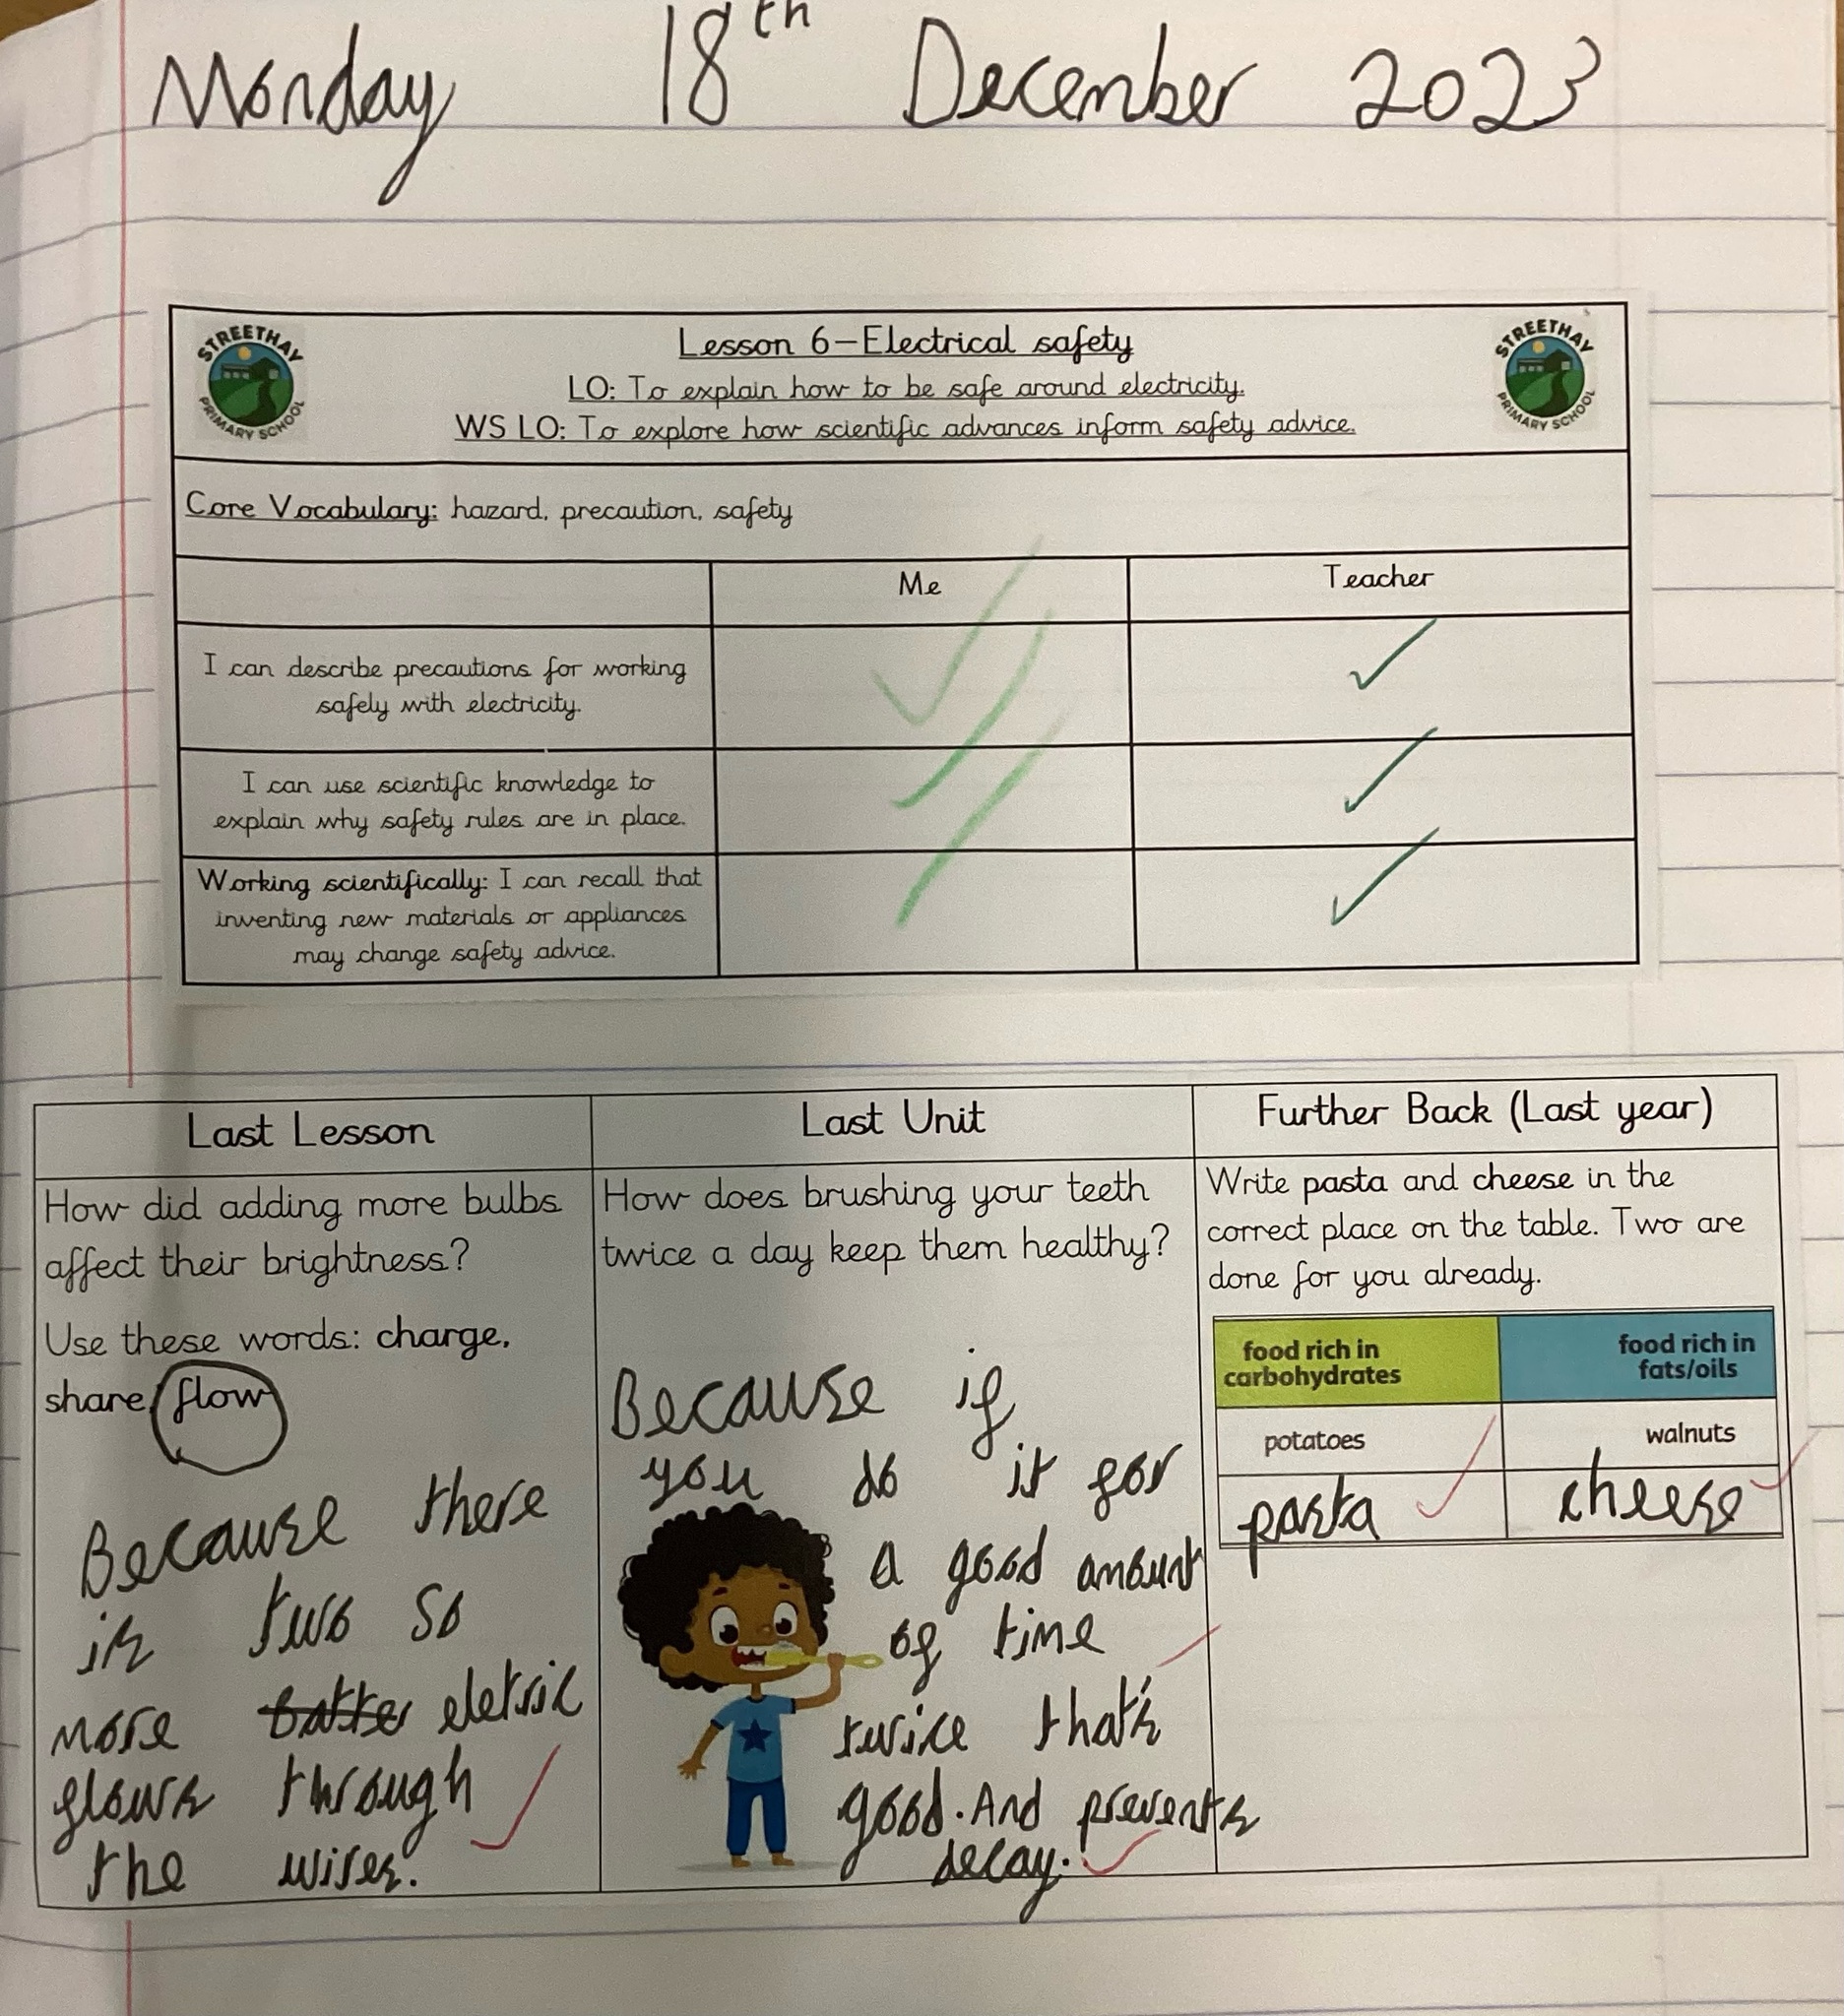 Monday 18th December 2023
STREETHAY PRIMARY SCHOOL
Lesson 6–Electrical safety
STREETHAY PRIMARY SCHOOL
LO: To explain how to be safe around electricity.
WS LO: To explore how scientific advances inform safety advice.
Core Vocabulary: hazard, precaution, safety
Me
Teacher
I can describe precautions for working
safely with electricity.
I can use scientific knowledge to
explain why safety rules are in place.
Working scientifically: I can recall that
inventing new materials or appliances
may change safety advice.
Last Lesson
How did adding more bulbs
affect their brightness?
Use these words: charge,
share, flow
Because there
is two so
more eletric
flows through
the wires.
Last Unit
How does brushing your teeth
twice a day keep them healthy?
Because if
you do it for
a good amount
of time
twice that's
good. And prevents
decay.
Further Back (Last year)
Write pasta and cheese in the
correct place on the table. Two are
done for you already.
food rich in
carbohydrates
food rich in
fats/oils
potatoes
walnuts
pasta
cheese